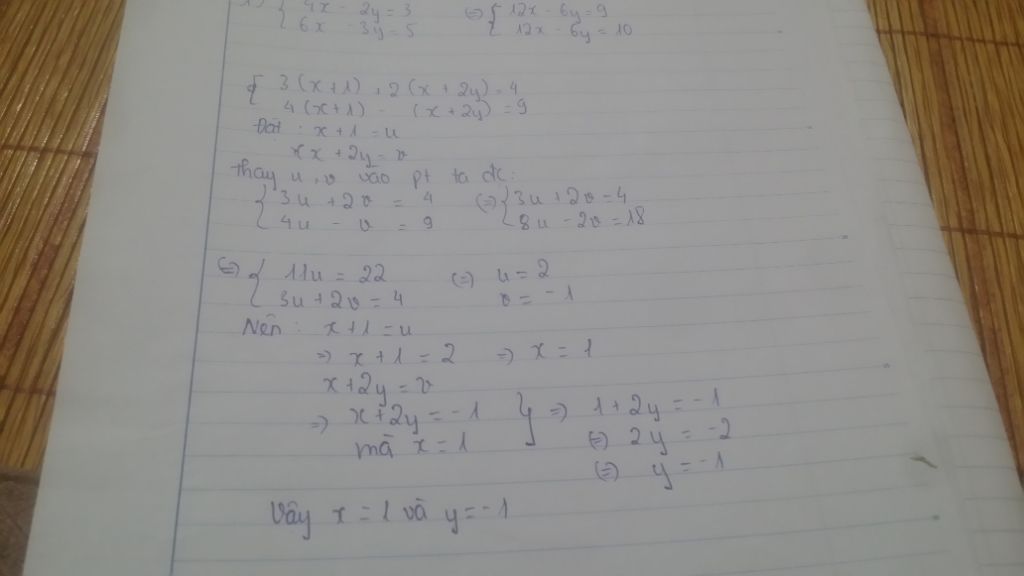 { 4x - 2y = 3 (=) { 12x - 6y = 9
6x - 3y = 5 12x - 6y = 10
{ 3(x+1) + 2(x + 2y) = 4
4(x+1) - (x+2y) = 9
Đặt : x+1 = u
x + 2y = v
thay u, v vào pt ta đc:
{ 3u + 2v = 4 (=) { 3u + 2v = 4
4u - v = 9 8u - 2v = 18
(=) { 11u = 22 (=) u = 2
3u + 2v = 4 v = -1
Nên : x+1 = u
=> x+1 = 2 => x = 1
x+2y = v
=> x+2y = -1 } => 1+2y = -1
mà x = 1 (=) 2y = -2
(=) y = -1
Vậy x = 1 và y = -1